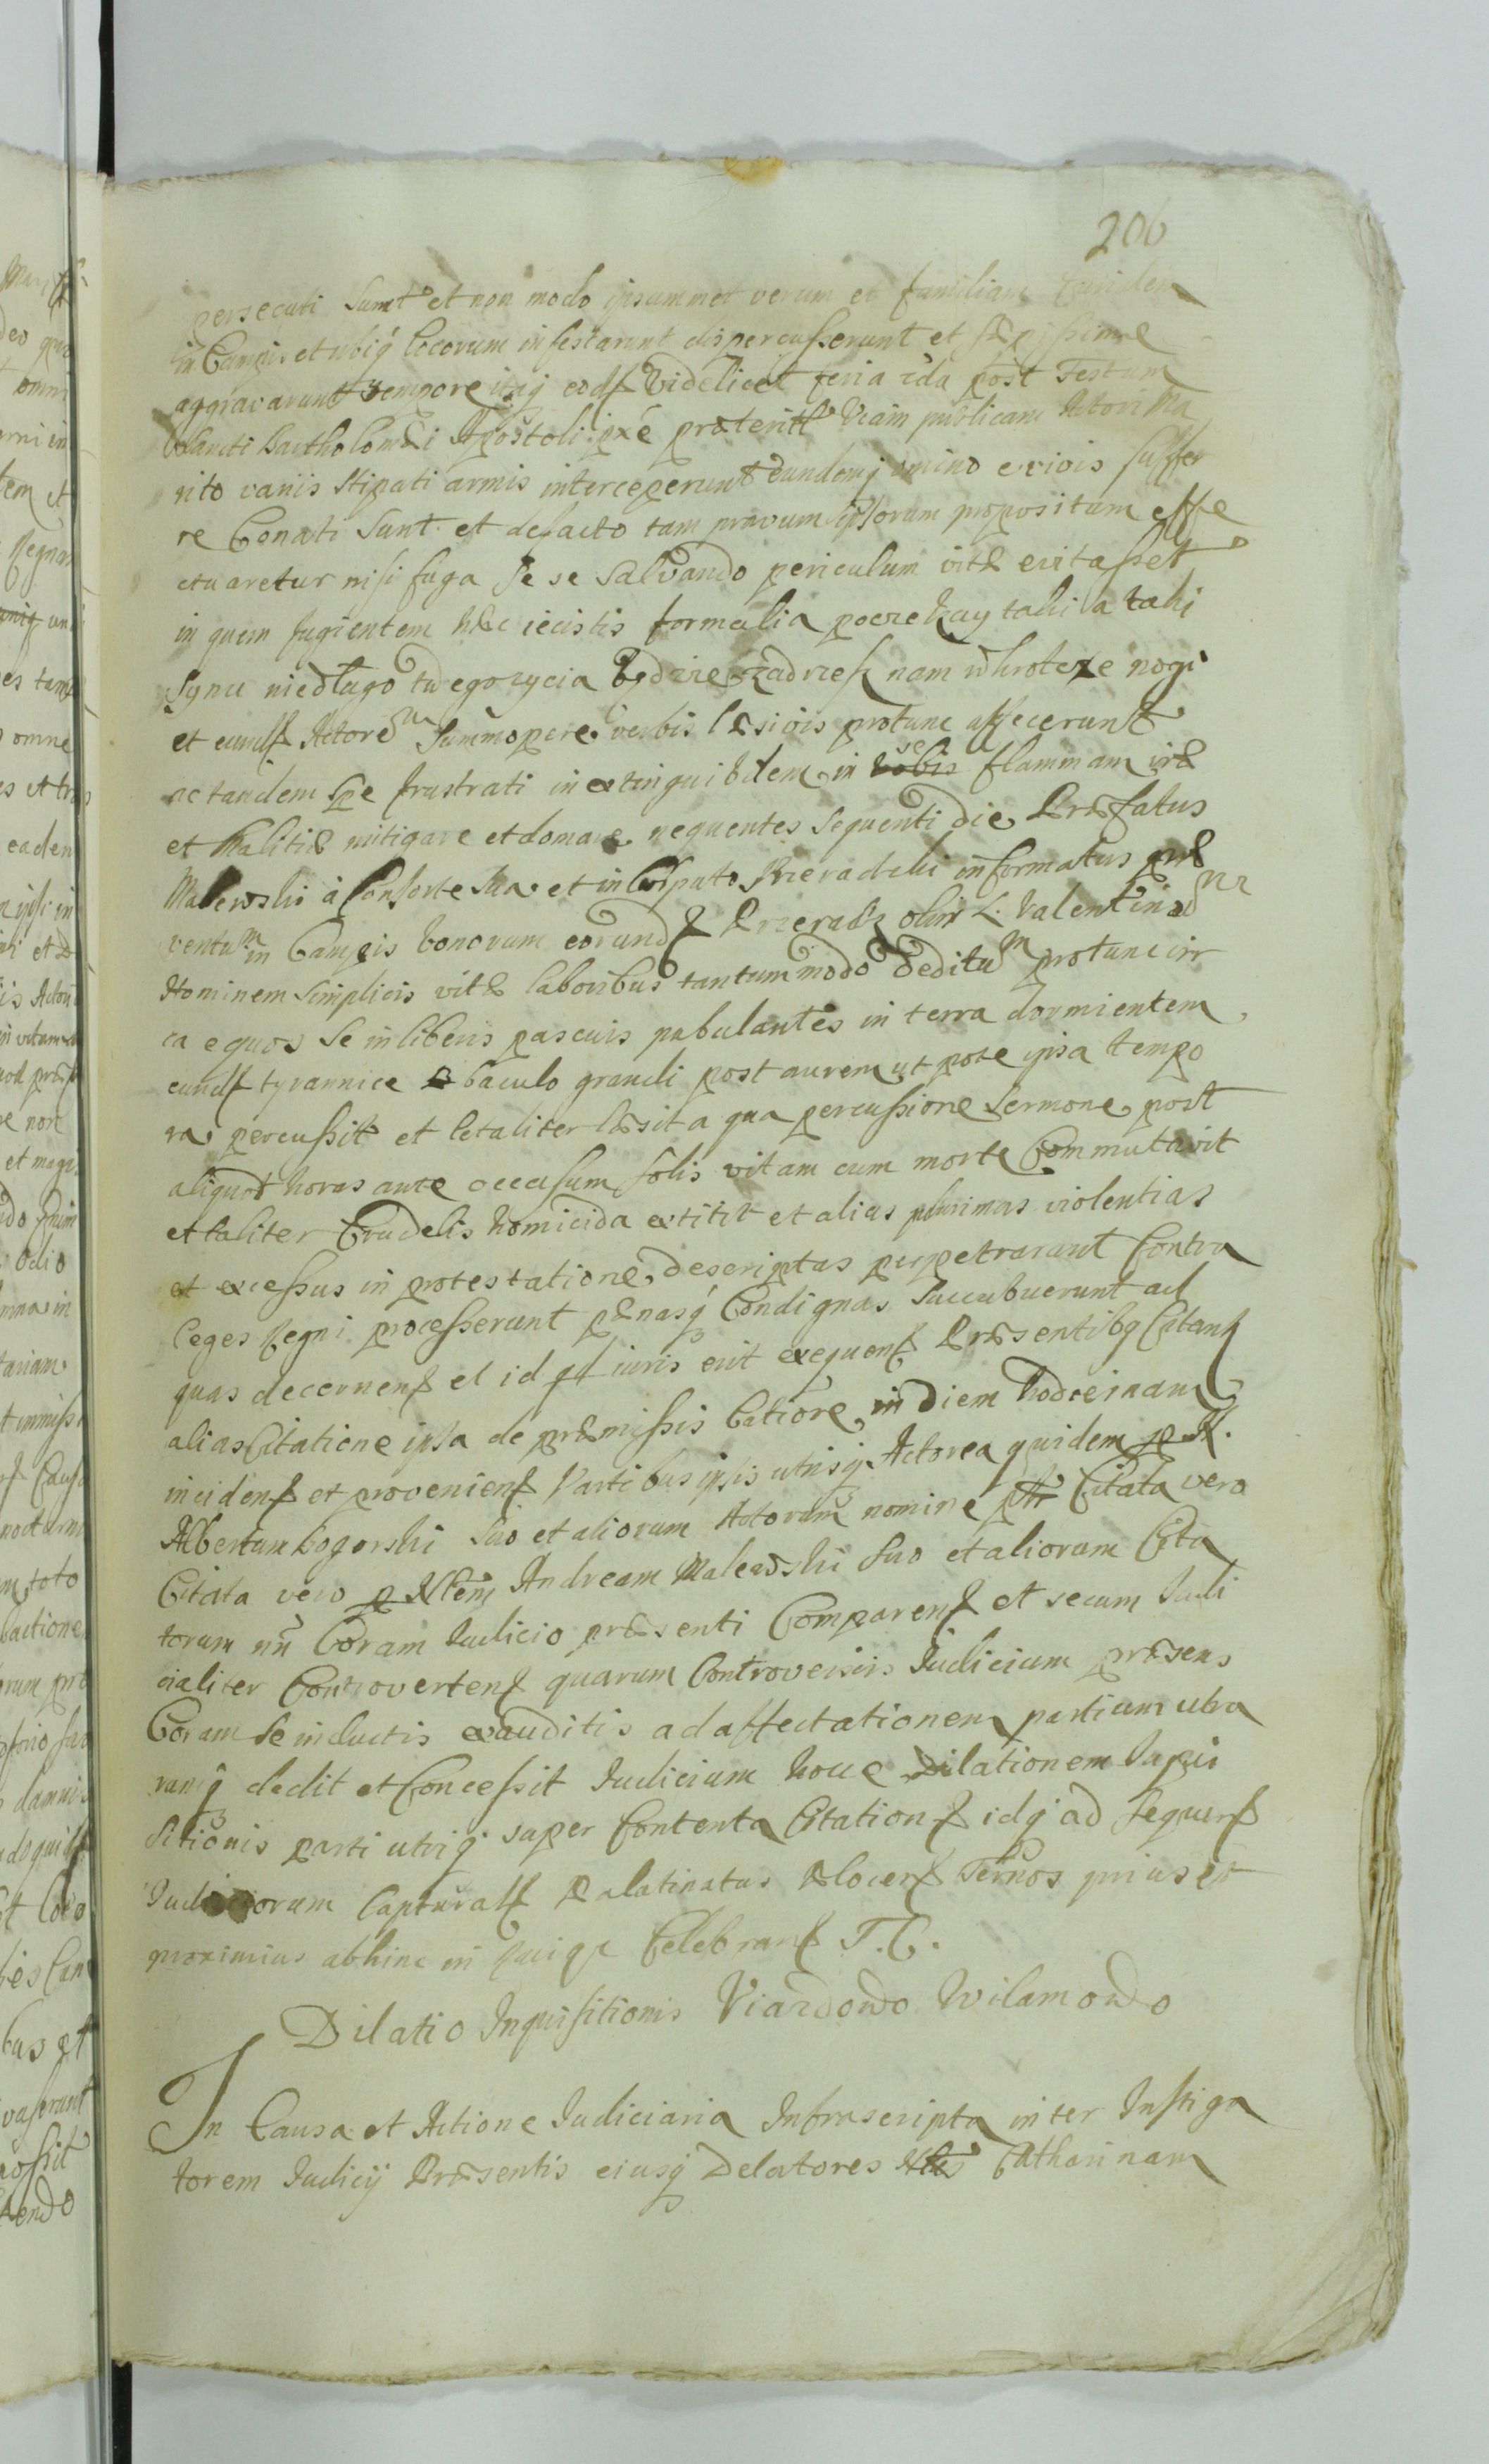 206
persecuti sunt et non modo ipsummet verum et familiam
in Campis et ubiq locorum infestarunt dispercusserunt et sæpissime
aggravarunt tempore itaq eods videlicet feria 2da post Festum
Sancti Bartholomæi Apostoli pxe præterit viam publicam Actori Ma
rito variis stipati armis interceperunt eundemq omino e vivis suffer
re Conati sunt et defacto tam pravum ipsorum propositum effe
ctuaretur nisi fuga se se salvando periculum vitæ evitasset
in quem fugientem hæc iecistis formalia poczekay taki a taki
synu niedługo twego zycia będzie zadrzesz nam wkrotcze nogi
et eunds Actorem summopere verbis læsivis protunc affecerunt
ac tandem spe frustrati inextinguibilem in se flammam iræ
et Malitiæ mitigare et domare nequentes sequenti die Præfatus
Malewski à Consorte sua et in Culpato Przeradzki informatus præ
ventum in Campis bonorum eorunds Przeradz olim L. Valentinum
Hominem simplicis vitæ laboribus tantummodo deditum protunc cir
ca equos se in liberis pascuis pabulantes in terra dormientem
eunds tyrannice baculo grandi post aurem utpote ipsa tempo
ra percussit et letaliter læsit a qua percussione sermone post
aliquot horas ante occasum solis vitam cum morte Commutavit
et taliter Crudelis homicida extitit et alias plurimas violentias
et excessus in protestatione descriptas perpetrarant Contra
leges Regni processerunt pænasq Condignas succubuerunt ad
quas decernens et id qd iuris erit exequens Præsentibq Citant
alias Citatione ipsa de præmissis latiore in diem hodiernam
incidens et proveniens Partibus ipsis utrisq Actorea quidem p N.
Albertum bogorski suo et aliorum Actorum nomine Citata vero
Citata vero p Nlem Andream Malewski suo et aliorum Cita
torum nn Coram Iudicio præsenti Comparens et secum Iudi
cialiter Controvertens quarum Controversiis Iudicium præsens
Coram se inductis exauditis ad affectationem partium utra
rumq dedit et Concessit Iudicium hocce Dilationem Inqui
sitionis parti utriq super Contenta Citations idq ad sequens
Iudiciorum Capturals Palatinatus Plocens Ternos prius et
proximius abhinc in Celebrans T. C.
Dilatio Inquisitionis Viazdowo Wilamowo
In Causa et Actione Iudiciaria Infrascripta inter Instiga
torem Iudicij Præsentis eiusq Delatores Nles Catharinam